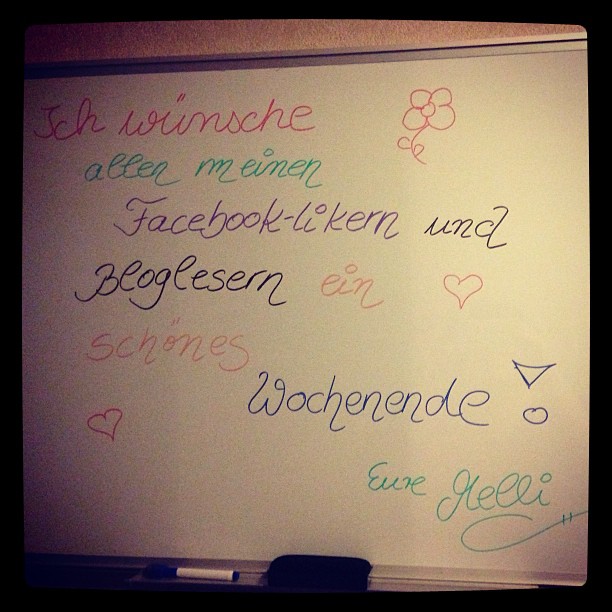 Ich wünsche
allen meinen
Facebook-likern und
Bloglesern ein
schönes
Wochenende!
Eure Melli